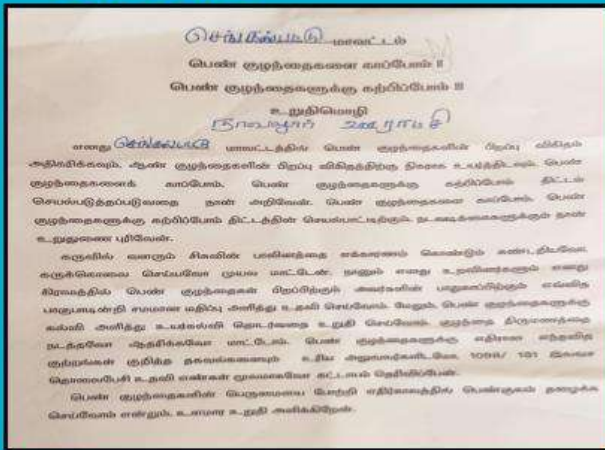 செங்கல்பட்டு மாவட்டம்
பெண் குழந்தைகளை காப்போம் !!
பெண் குழந்தைகளுக்கு கற்பிப்போம் !!!
உறுதிமொழி
நாவலூர் ஊராட்சி
எனது செங்கல்பட்டு மாவட்டத்தில் பெண் குழந்தைகளின் பிறப்பு விகிதம்
அதிகரிக்கவும், ஆண் குழந்தைகளின் பிறப்பு விகிதத்திற்கு நிகராக உயர்த்திடவும், பெண்
குழந்தைகளைக் காப்போம், பெண் குழந்தைகளுக்கு கற்பிப்போம் திட்டம்
செயல்படுத்தப்படுவதை நான் அறிவேன். பெண் குழந்தைகளை காப்போம், பெண்
குழந்தைகளுக்கு கற்பிப்போம் திட்டத்தின் செயல்பாட்டிற்கும், நடவடிக்கைகளுக்கும் நான்
உறுதுணை புரிவேன்.
கருவில் வளரும் சிசுவின் பாலினத்தை எக்காரணம் கொண்டும் கண்டறியவோ,
கருக்கொலை செய்யவோ முயல மாட்டேன். நானும் எனது உறவினர்களும் எனது
கிராமத்தில் பெண் குழந்தைகள் பிறப்பிற்கும் அவர்களின் பாதுகாப்பிற்கும் எவ்வித
பாகுபாடின்றி சமமான மதிப்பு அளித்து உதவி செய்வோம். மேலும், பெண் குழந்தைகளுக்கு
கல்வி அளித்து உயர்கல்வி தொடர்வதை உறுதி செய்வோம். குழந்தை திருமணத்தை
நடத்தவோ ஆதரிக்கவோ மாட்டோம். பெண் குழந்தைகளுக்கு எதிரான எந்தவித
குற்றங்கள் குறித்த தகவல்களையும் உரிய அலுவலர்களிடமோ 1098/ 181 இலவச
தொலைபேசி உதவி எண்கள் மூலமாகவோ கட்டாயம் தெரிவிப்பேன்.
பெண் குழந்தைகளின் பெருமையை போற்றி எதிர்காலத்தில் பெண்குலம் தழைக்க
செய்வோம் என்றும், உளமார உறுதி அளிக்கிறேன்.